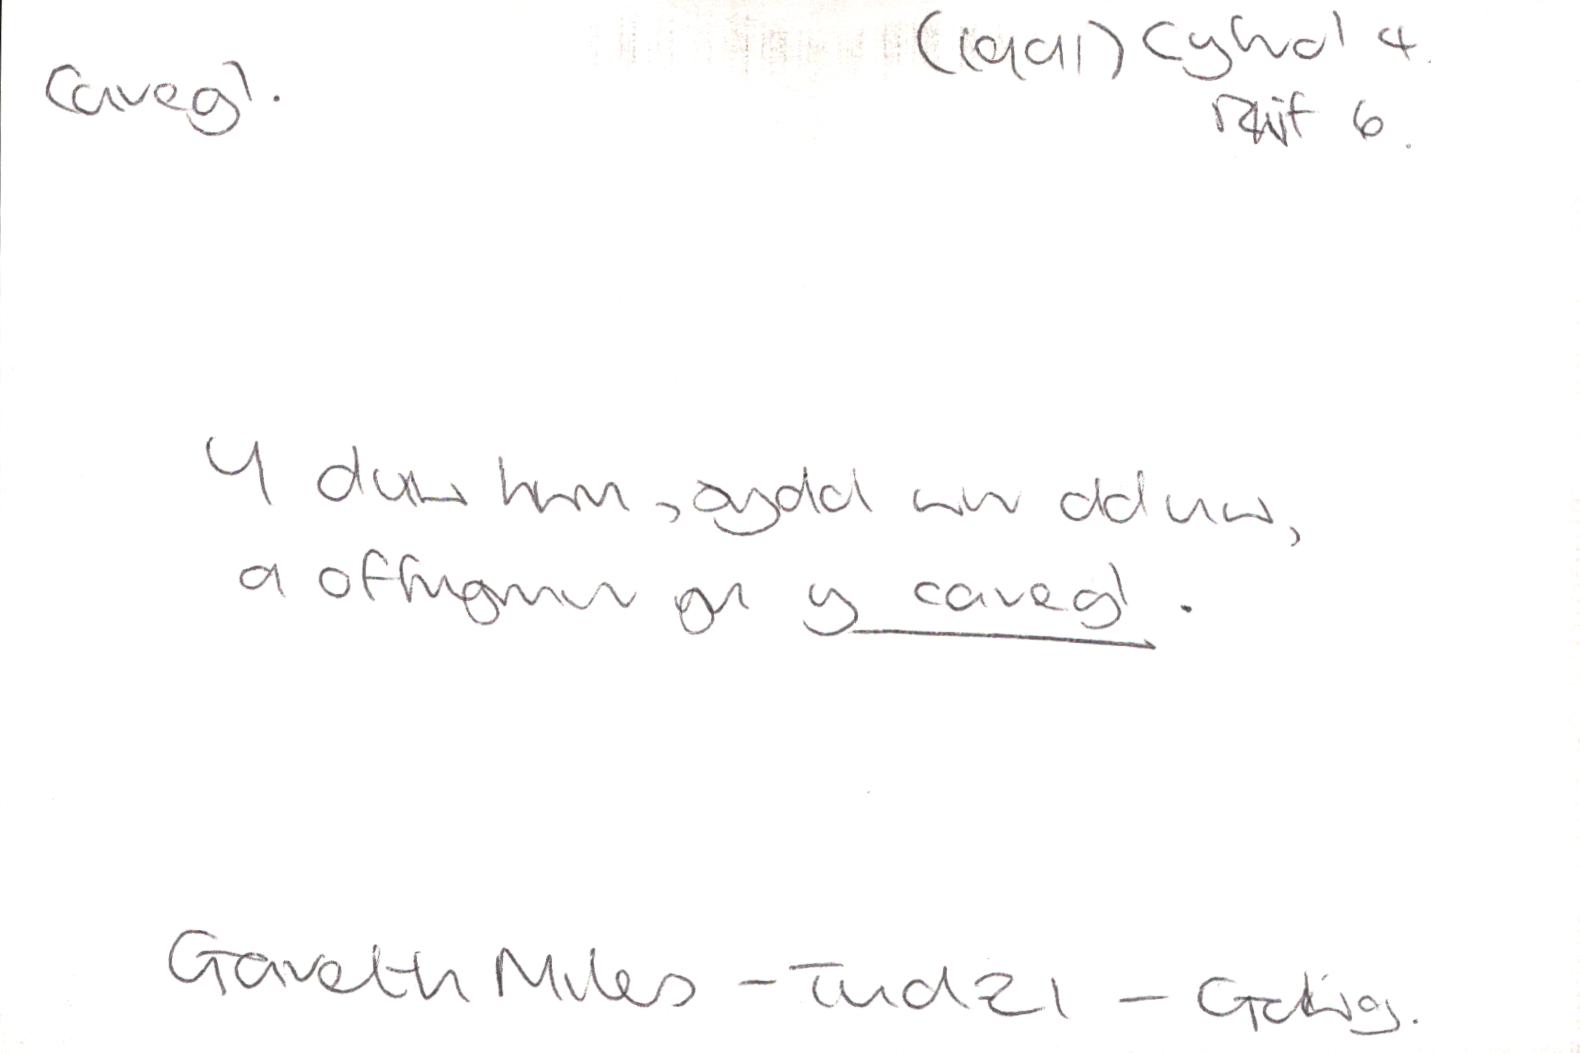 Caregl.
(1991) Cyfrol 4.
Rhif 6.
Y duw hwn, sydd wir dduw,
a offrymir yn y caregl.
Gareth Miles - Tud 21 - Golwg.